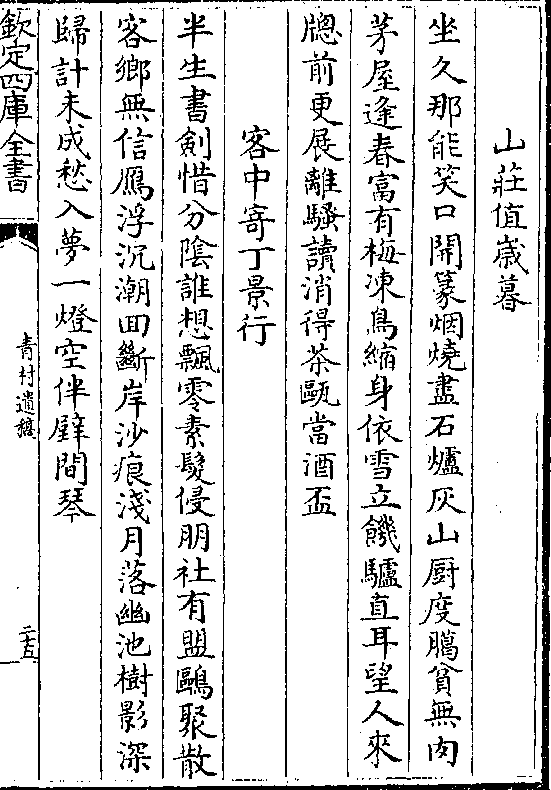 山莊值歲暮
坐久那能笑口開篆烟燒盡石爐灰山厨度臈貧無肉
茅屋逢春富有梅凍鳥縮身依雪立饑驢直耳望人來
牎前更展離騷讀消得茶甌當酒盃
客中寄丁景行
半生書劍惜分陰誰想飄零素髪侵朋社有盟鷗聚散
客鄉無信鴈浮沉潮回斷岸沙痕淺月落幽池樹影深
歸計未成愁入夢一燈空伴壁間琴
欽定四庫全書
青村遺稿
二十五